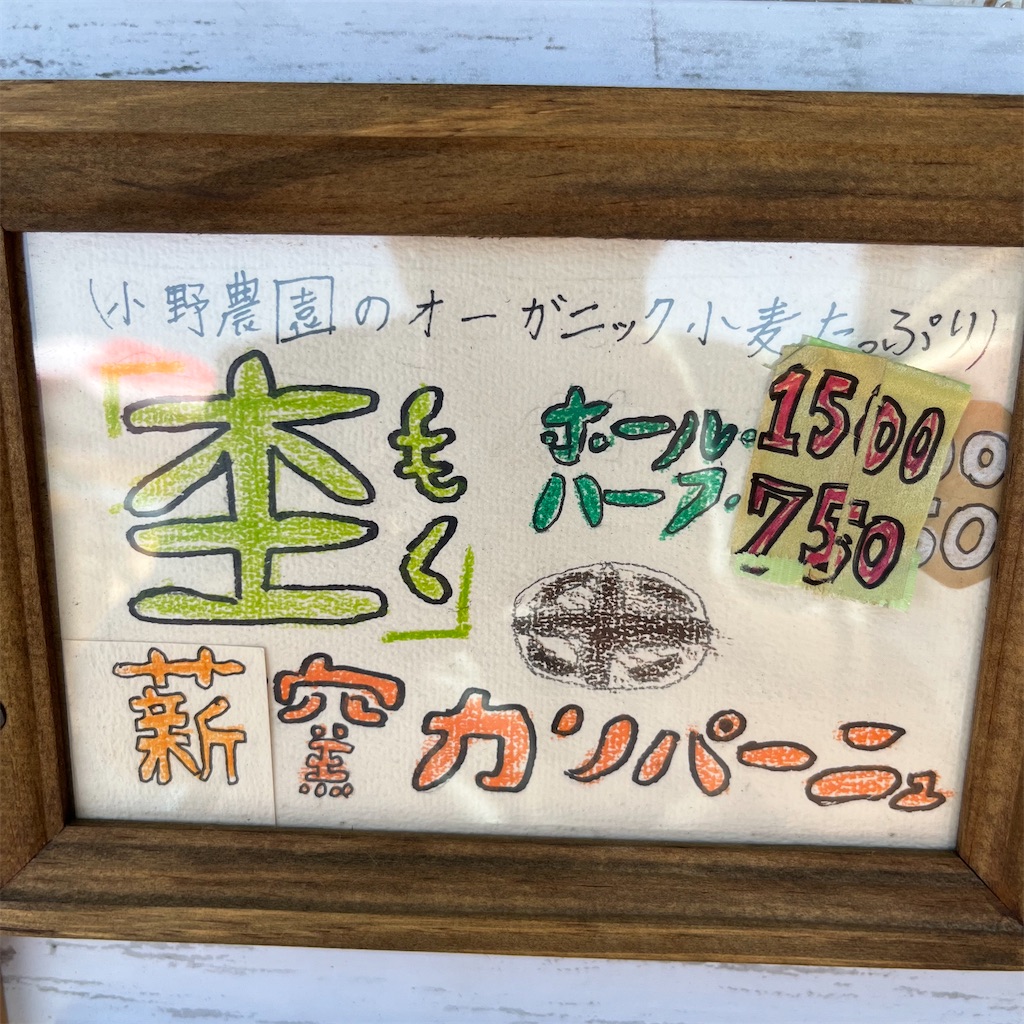 (小野農園のオーガニック小麦たっぷり)
「杢もく」
ホール・1500
ハーフ・750
薪窯カンパーニュ